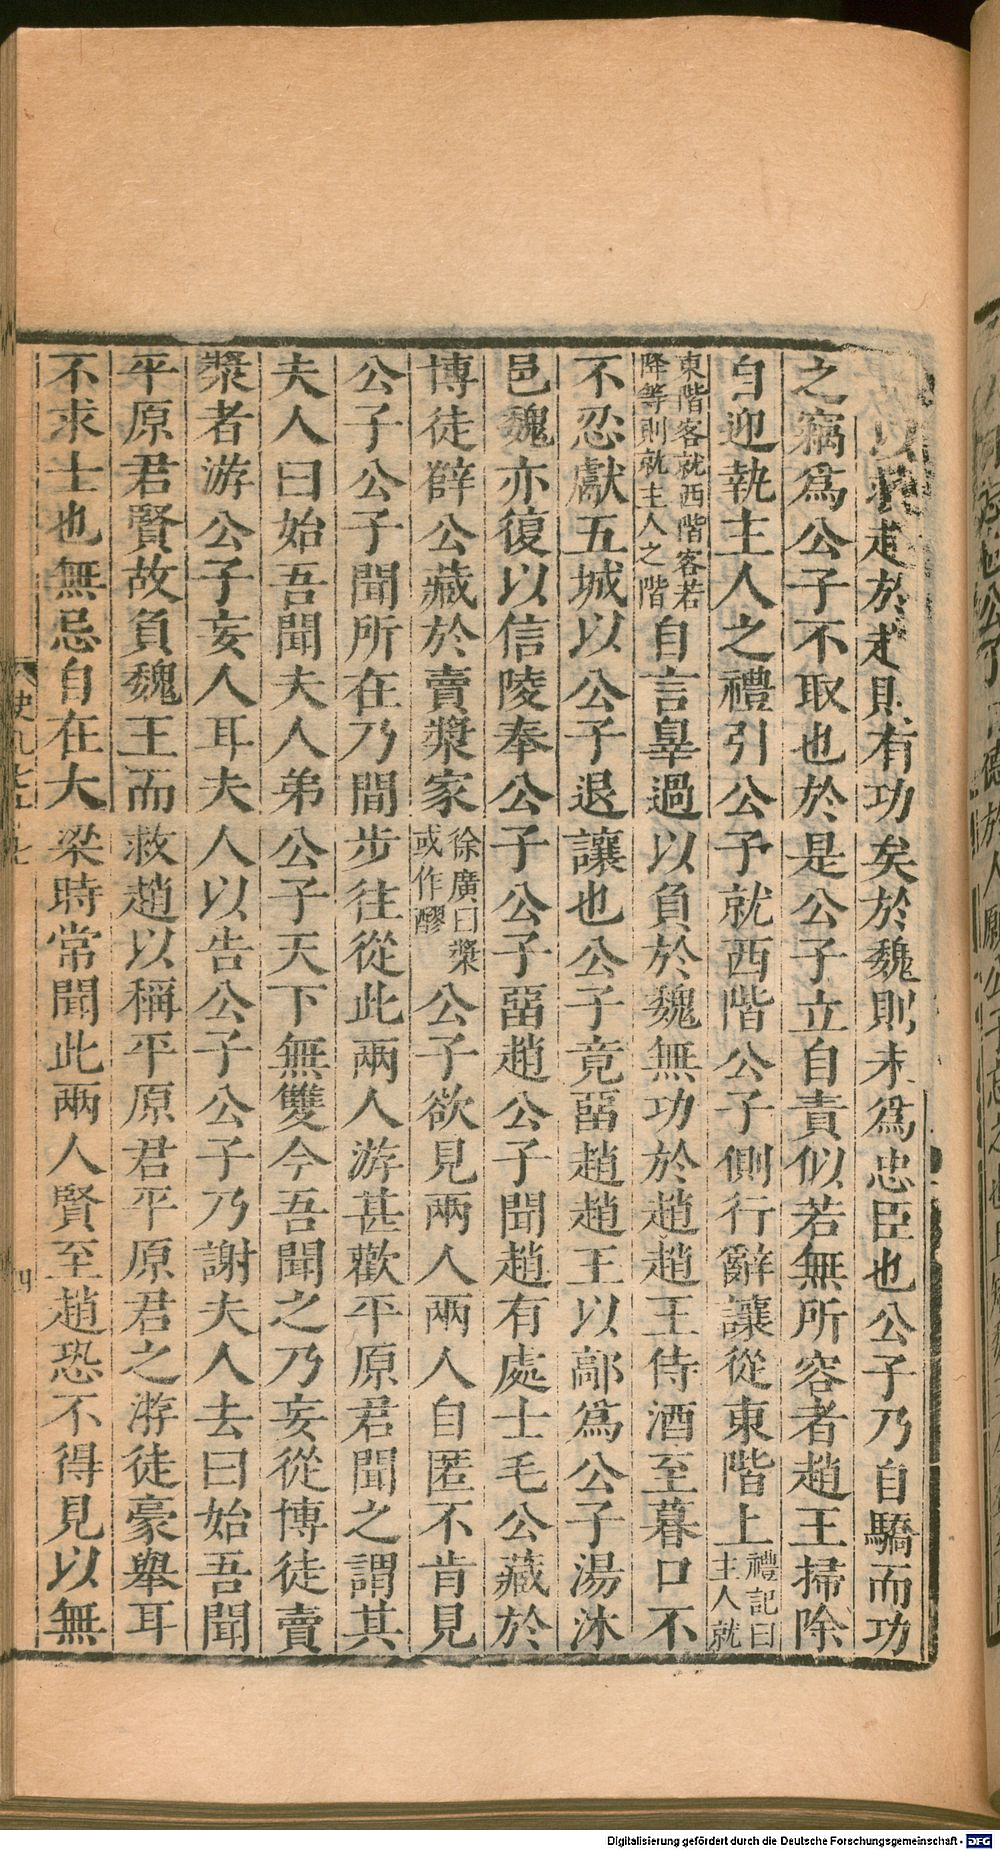 以救趙於趙則有功矣於魏則未爲忠臣也公子乃自驕而功
之竊爲公子不取也於是公子立自責似若無所容者趙王掃除
自迎執主人之禮引公子就西階公子側行辭讓從東階上禮記曰主人就
東階客就西階客若降等則就主人之階自言辠過以負於魏無功於趙趙王侍酒至暮口不
不忍獻五城以公子退讓也公子竟畱趙趙王以鄗爲公子湯沐
邑魏亦復以信陵奉公子公子畱趙公子聞趙有處士毛公藏於
博徒薛公藏於賣漿家徐廣曰漿或作醪公子欲見兩人兩人自匿不肯見
公子公子聞所在乃間步往從此兩人游甚歡平原君聞之謂其
夫人曰始吾聞夫人弟公子天下無雙今吾聞之乃妄從博徒賣
漿者游公子妄人耳夫人以告公子公子乃謝夫人去曰始吾聞
平原君賢故負魏王而救趙以稱平原君平原君之游徒豪舉耳
不求士也無忌自在大梁時常聞此兩人賢至趙恐不得見以無
Digitalisierung gefördert durch die Deutsche Forschungsgemeinschaft - DFG